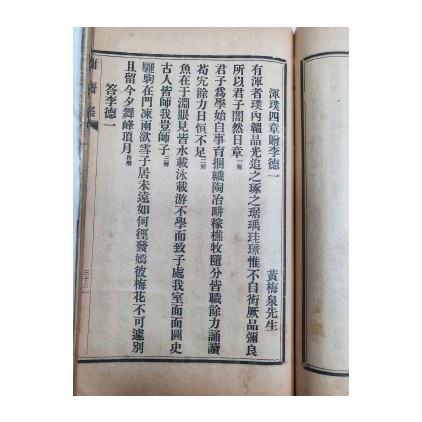 渾璞四章贈李德一
黃梅泉先生
有渾者璞內韞晶光追之琢之琚瑀珪璋惟不自衒厥品彌良
所以君子闇然日章一解
君子爲學始自事育捆織陶冶耕稼樵牧隨分皆職餘力誦讀
苟宂餘力日恒不足二解
魚在于淵眼見皆水載泳載游不學而致子處我室面面圖史
古人皆師我豈師子三解
驪駒在門凍雨欲雪子居未遠如何徑發嫣彼梅花不可遽別
且留今夕舞峰項月四解
答李德一
三十